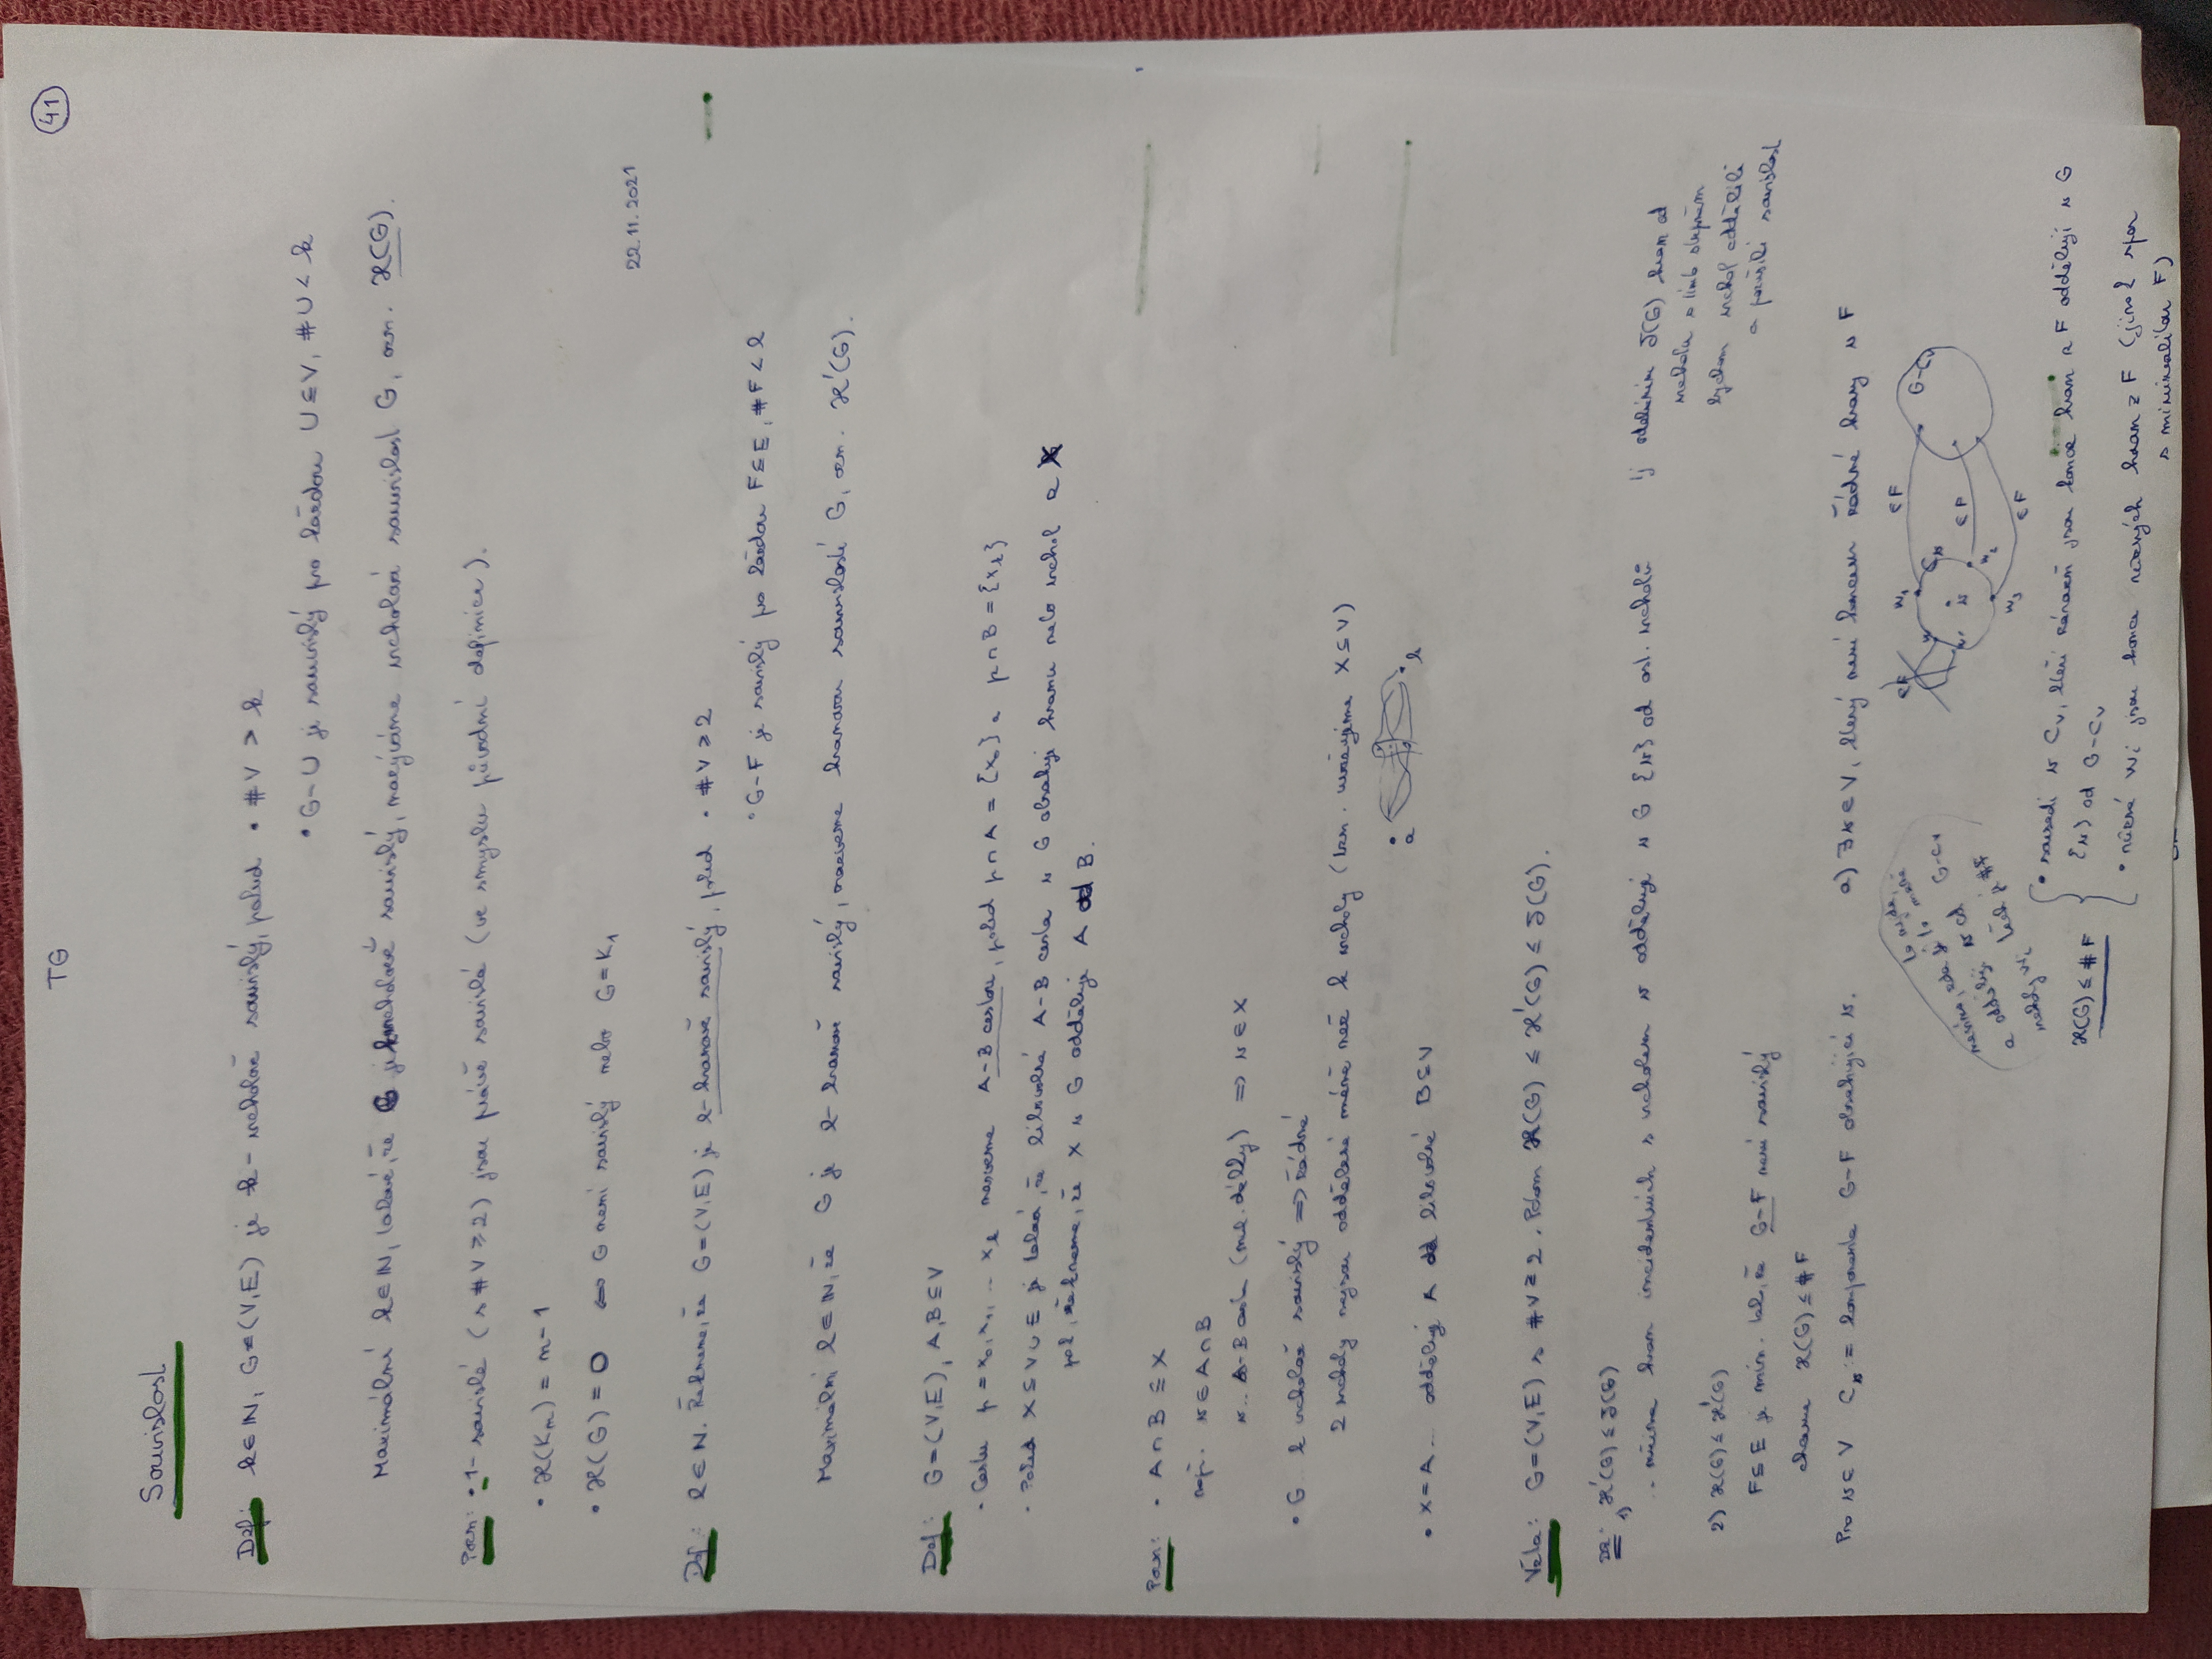 TG
41
Souvislost
Def: k∈ℕ, G=(V,E) je k-vrcholově souvislý, pokud • #V > k
• G-U je souvislý pro každou U⊆V, #U < k
Maximální k∈ℕ, takové, že G je k-vrcholově souvislý, nazýváme vrcholová souvislost G, ozn. ϰ(G).
Pozn: • 1-souvislé (s #V ≥ 2) jsou právě souvislé (ve smyslu původní definice).
• ϰ(Kₙ) = n-1
• ϰ(G) = 0 ⇔ G není souvislý nebo G=K₁
22.11.2021
Def: l∈ℕ. Řekneme, že G=(V,E) je l-hranově souvislý, pokud • #V ≥ 2
• G-F je souvislý pro každou F⊆E, #F < l
Maximální l∈ℕ, že G je l-hranově souvislý, nazveme hranovou souvislostí G, ozn. ϰ'(G).
Def: G=(V,E), A,B⊆V
• Cestu p = x₀,x₁,... xₖ nazveme A-B cestou, pokud p∩A = {x₀} a p∩B = {xₖ}
• Pokud X⊆V∪E je taková, že libovolná A-B cesta v G obsahuje hranu nebo vrchol z X
pak řekneme, že X v G odděluje A od B.
Pozn: • A∩B ⊆ X
např. v∈A∩B
v... A-B cesta (nul. délky) ⇒ v∈X
• G k vrcholově souvislý ⇒ žádné
2 vrcholy nejsou oddělené méně než k vrcholy (tzn. uvažujeme X⊆V)
a
b
• X=A ... odděluje A od libovolné B⊆V
Věta: G=(V,E) s #V≥2. Potom ϰ(G) ≤ ϰ'(G) ≤ δ(G).
Dk: 1) ϰ'(G) ≤ δ(G)
.. množina hran incidentních s vrcholem v odděluje v G {v} od ost. vrcholů
tj odebráním δ(G) hran od
vrcholu s tímto stupněm
bychom vrchol oddělili
a porušili souvislost
2) ϰ(G) ≤ ϰ'(G)
F⊆E je min. tak, že G-F není souvislý
chceme ϰ(G) ≤ #F
Pro v∈V Cᵥ := komponenta G-F obsahující v.
a) ∃v∈V, který není koncem žádné hrany v F
∈F
w₁
Cᵥ
∈F
G-Cᵥ
∈F
v
w₂
∈F
w₃
a oddělují v od G-Cᵥ
ϰ(G) ≤ #F
• sousedi v Cᵥ, kteří zároveň jsou konce hran z F oddělují v G
{v} od G-Cᵥ
• různá wᵢ jsou konce různých hran z F (jinak spor
s minimalitou F)